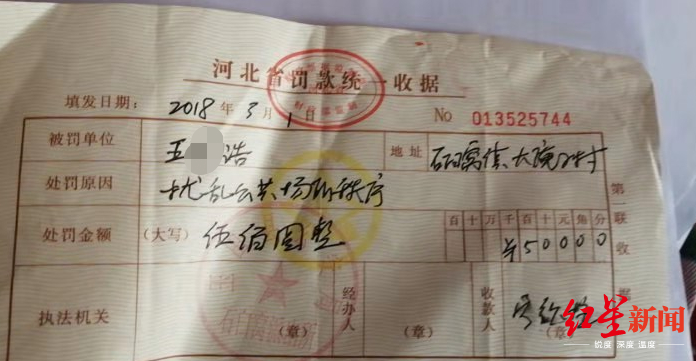 河北省罚款统一收据
填发日期： 2018 年 3 月 1 日 No 013525744
被罚单位 王 浩 地址
处罚原因 扰乱公共场所秩序
处罚金额 (大写) 伍佰圆整 百 十 万 千 百 十 元 角 分
¥50000
执法机关 (章) 经办人 (章) 收款人 (章)
第一联 收据
红星新闻
锐度 深度 温度